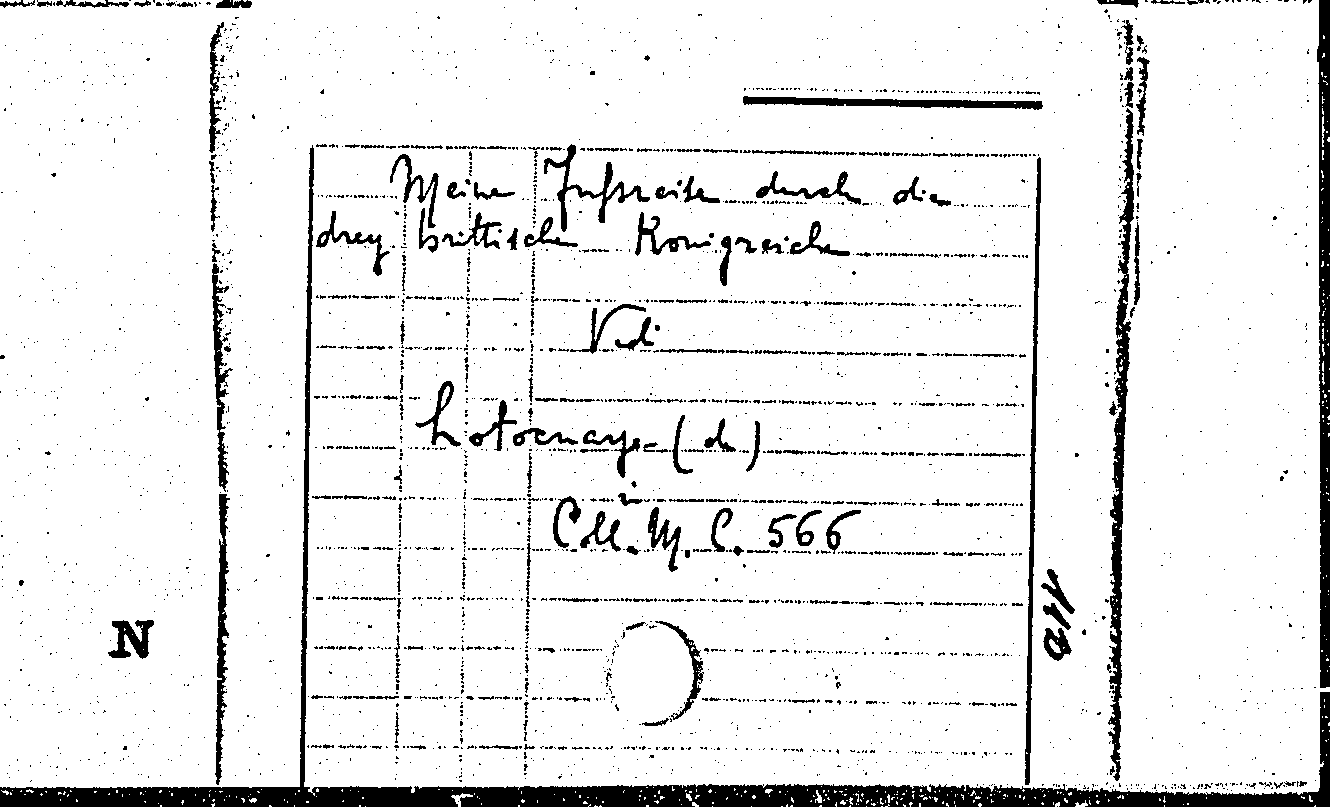 Meine Fussreise durch die
drey brittischen Königreiche
Vedi
Latocnaye (de)
in
Coll. M. C. 566
N